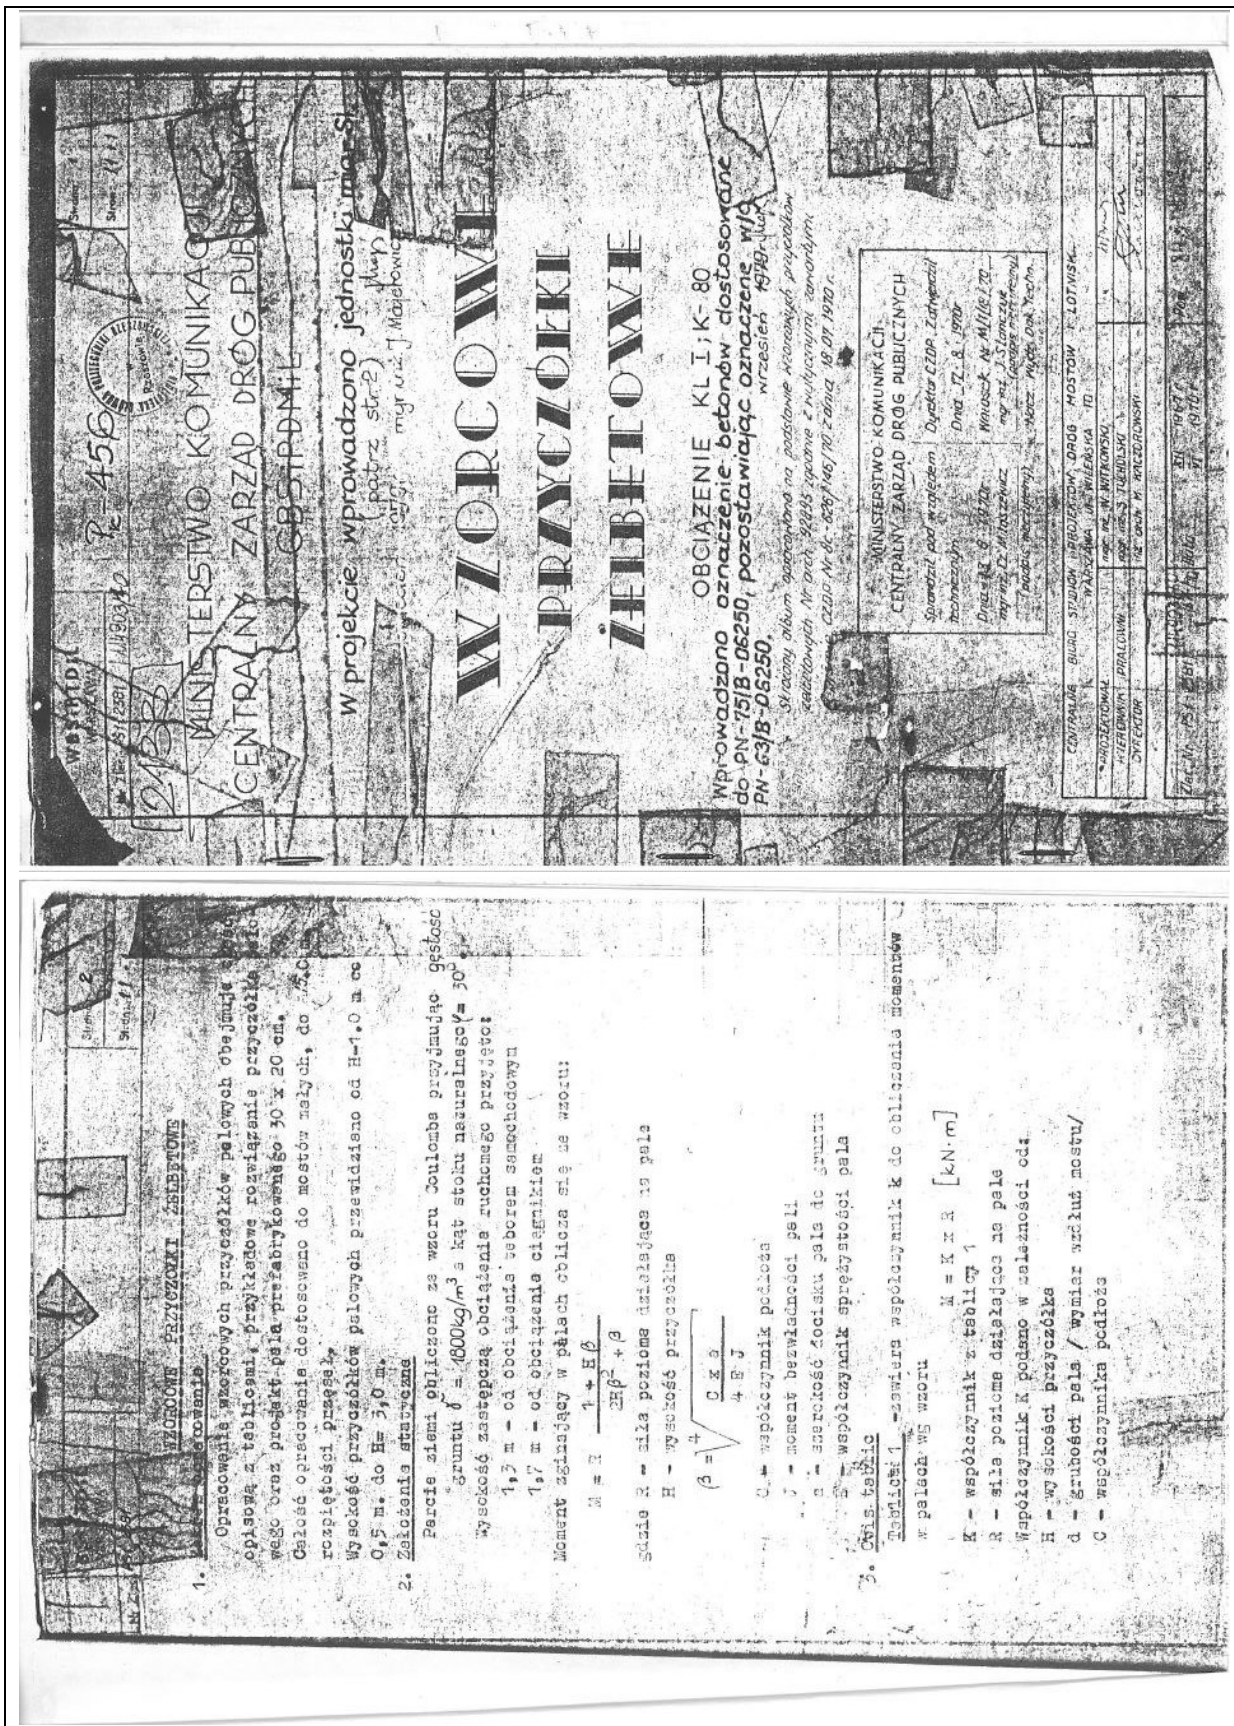 WBSiPTDiL
WARSZAWA
Strona: 1
Stron: 11
Pe-456
BIBLIOTEKA GŁÓWNA POLITECHNIKI RZESZOWSKIEJ
w Rzeszowie
2133
MINISTERSTWO KOMUNIKACJI
CENTRALNY ZARZĄD DRÓG PUBLICZNYCH
CBSiPDMiL
W projekcie wprowadzono jednostki miar SI.
(patrz str. 2)
mgr inż. J. Majchowicz
WZORCOWE
PRZYCZÓŁKI
ŻELBETOWE
OBCIĄŻENIE KL I; K-80
Wprowadzono oznaczenie betonów dostosowane
do PN-75/B-06250, pozostawiając oznaczenie w/g
PN-63/B-06250.
wrzesień 1979r.
Skrócony album opracowano na podstawie wzorcowych przyczółków
żelbetowych Nr arch. 92695 zgodnie z wytycznymi zawartymi
w CZDP Nr Bc-626/146/70 z dnia 18.07.1970 r.
MINISTERSTWO KOMUNIKACJI
CENTRALNY ZARZĄD DRÓG PUBLICZNYCH
Sprawdził pod względem
technicznym
mgr inż. Z. Mitaszewicz
(podpis nieczytelny)
Dyrektor CZDP Zatwierdził
Dnia 12. 8. 1970r
mgr inż. J. Stańczyk
(podpis nieczytelny)
CENTRALNE BIURO STUDIÓW I PROJEKTÓW DRÓG MOSTÓW I LOTNISK
WARSZAWA UL. WILEŃSKA 10
PROJEKTOWAŁ mgr inż. W. WITKOWSKI
KIEROWNIK PRACOWNI mgr inż. S. TUCHOLSKI
DYREKTOR inż. arch. M. KACZOROWSKI
XII 1967r
VI 1970r
Strona: 2
Stron: 11
WZORCOWE PRZYCZÓŁKI ŻELBETOWE
1.
Opracowanie wzorcowych przyczółków palowych obejmuje część
opisową z tablicami, przykładowe rozwiązanie przyczółka palo-
wego oraz projekt pala prefabrykowanego 30 x 20 cm.
Całość opracowania dostosowano do mostów małych, do 15.0 m
rozpiętości przęseł.
Wysokość przyczółków palowych przewidziano od H=1.0 m co
0,5 m. do H= 3,0 m.
2. Założenia statyczne
Parcie ziemi obliczono ze wzoru Coulomba przyjmując gęstość
gruntu γ = 1800kg/m³ a kąt stoku naturalnego φ = 30°.
wysokość zastępczą obciążenia ruchomego przyjęto:
1,3 m - od obciążenia taborem samochodowym
1,7 m - od obciążenia ciągnikiem
Moment zginający w palach oblicza się ze wzoru:
M = R (1 + Hβ) / (2Hβ² + β)
gdzie R - siła pozioma działająca na pale
H - wysokość przyczółka
β = ⁴√(C x a / 4 E J)
C - współczynnik podłoża
J - moment bezwładności pali
a - szerokość docisku pala do gruntu
E - współczynnik sprężystości pala
3. Opis tablic
Tablica 1 - zawiera współczynnik k do obliczenia momentów
w palach wg wzoru
M = K x R [kN·m]
K - współczynnik z tablicy 1
R - siła pozioma działająca na pale
Współczynnik K podano w zależności od:
H - wysokości przyczółka
d - grubości pala / wymiar wzdłuż mostu/
C - współczynnika podłoża